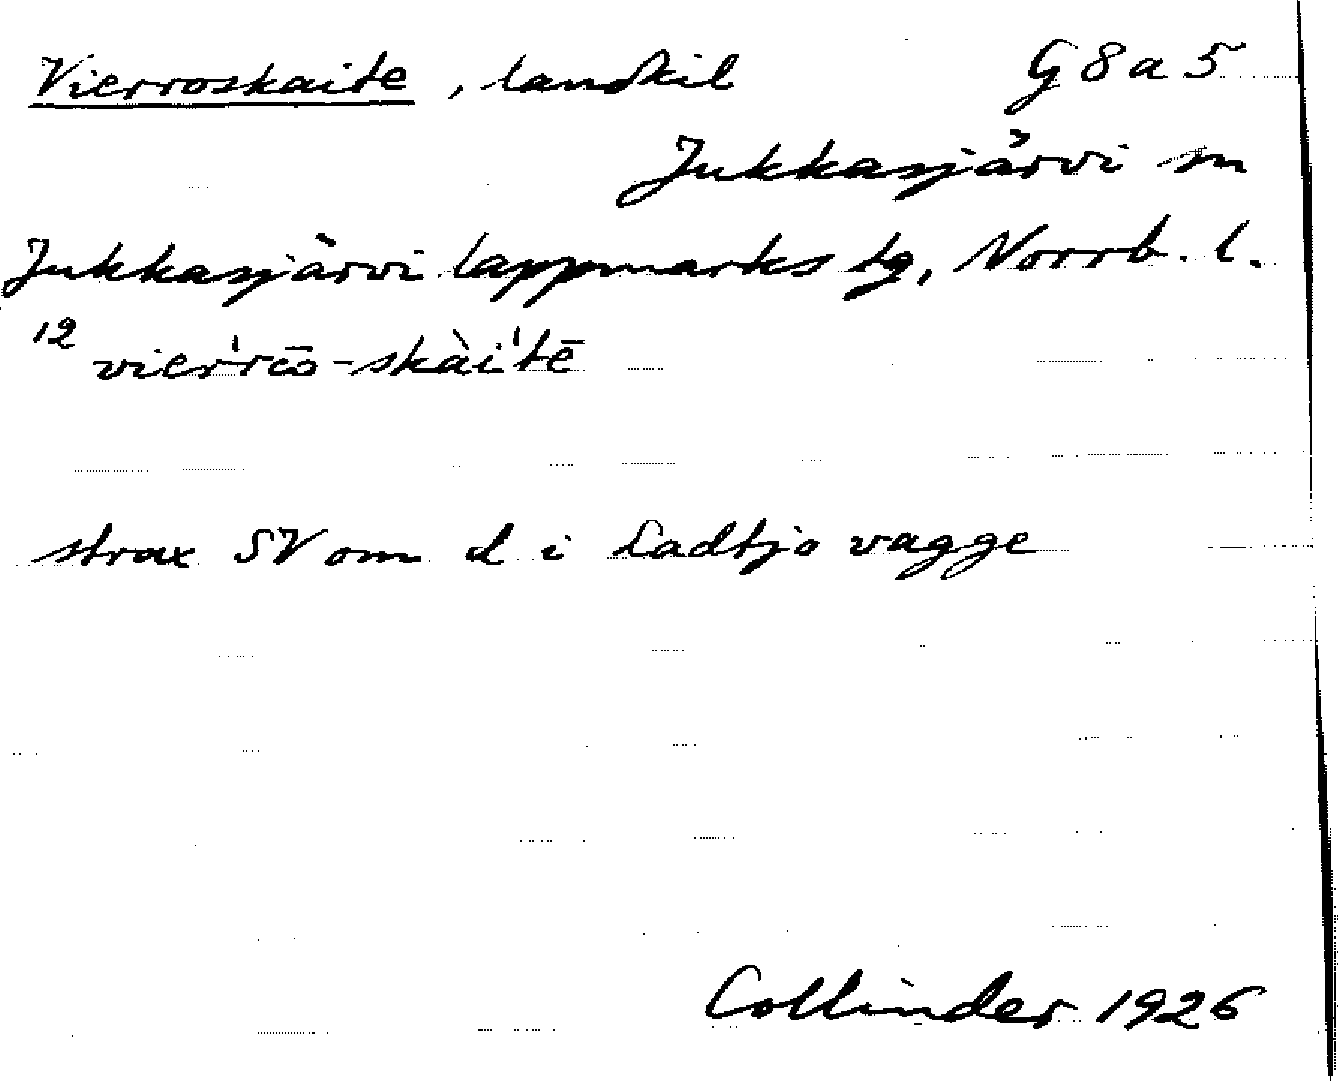 Vierroskaite, landkil G8a5
Jukkasjärvi sn
Jukkasjärvi lappmarks tg, Norrb. l.
12 vier'rēō-skài'tē
strax SV om d i Ladtjo vagge
Collinder 1926